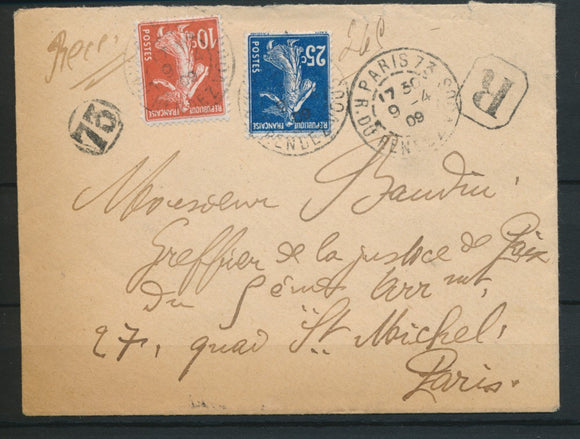 10c
POSTES
REPUBLIQUE FRANÇAISE
25c
POSTES
REPUBLIQUE FRANÇAISE
260
PARIS 73
17 50
9 - 4
09
R. DU RENDEZ-VOUS
R
73
Monsieur Baudin
Greffier de la justice de Paix
du 5ème Arrnt,
27, quai "St Michel,
Paris.